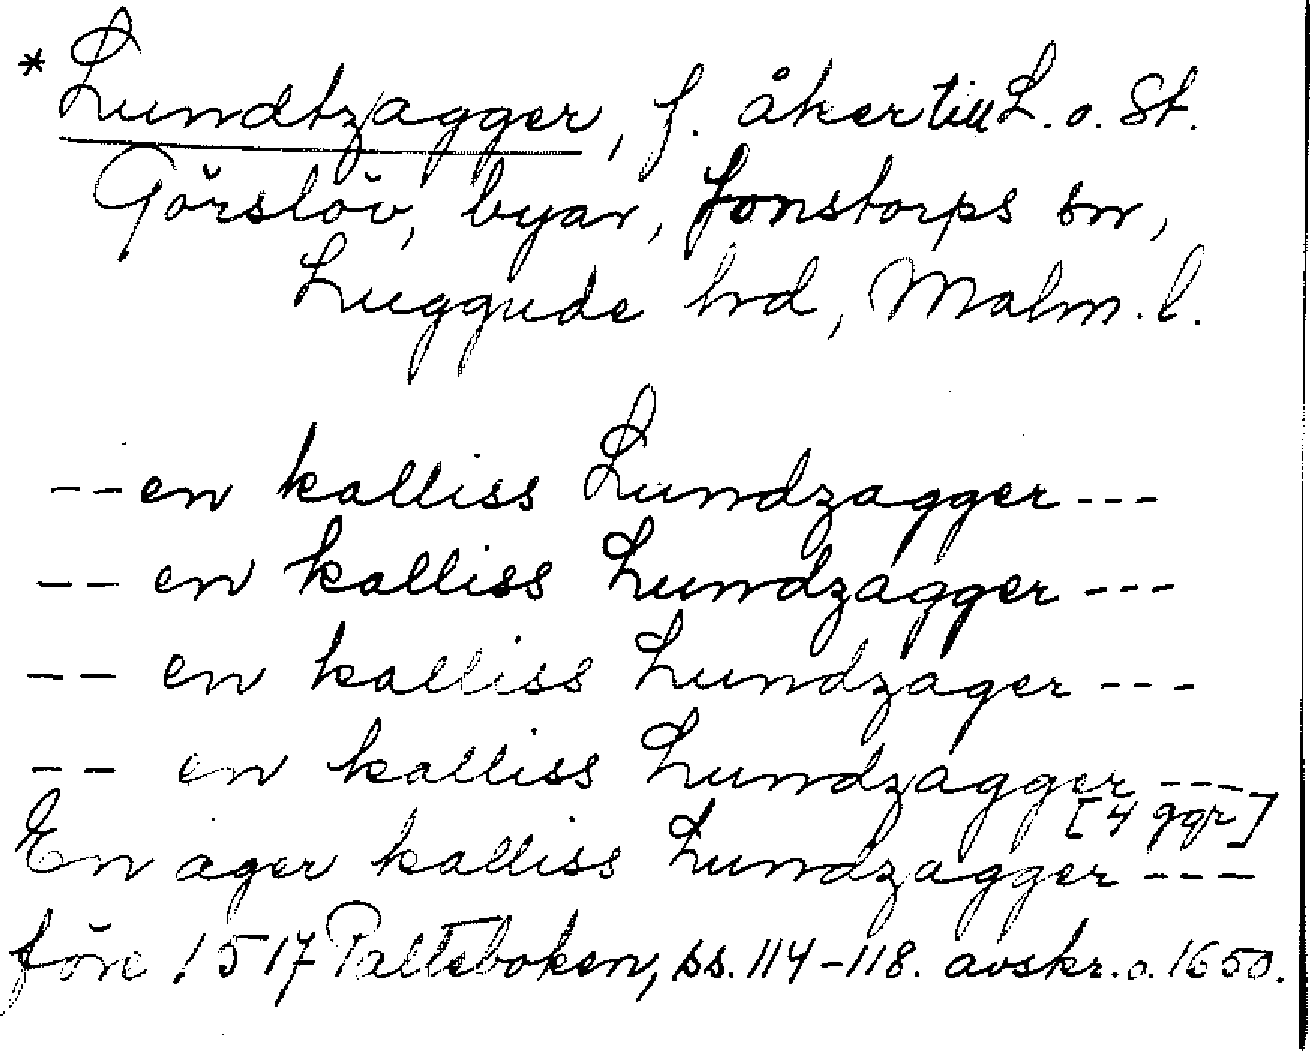 * Lundtzagger, f. åker till L. o. St.
Görslöv, byar, Jonstorps sn,
Luggude hd, Malm. l.
-- en kalliss Lundzagger ---
-- en kalliss Lundzagger ---
-- en kalliss Lundzager ---
-- en kalliss Lundzagger ---
[4 ggr]
En ager kalliss Lundzagger ---
före 1517 Palteboken, ss. 114-118. avskr. o. 1650.